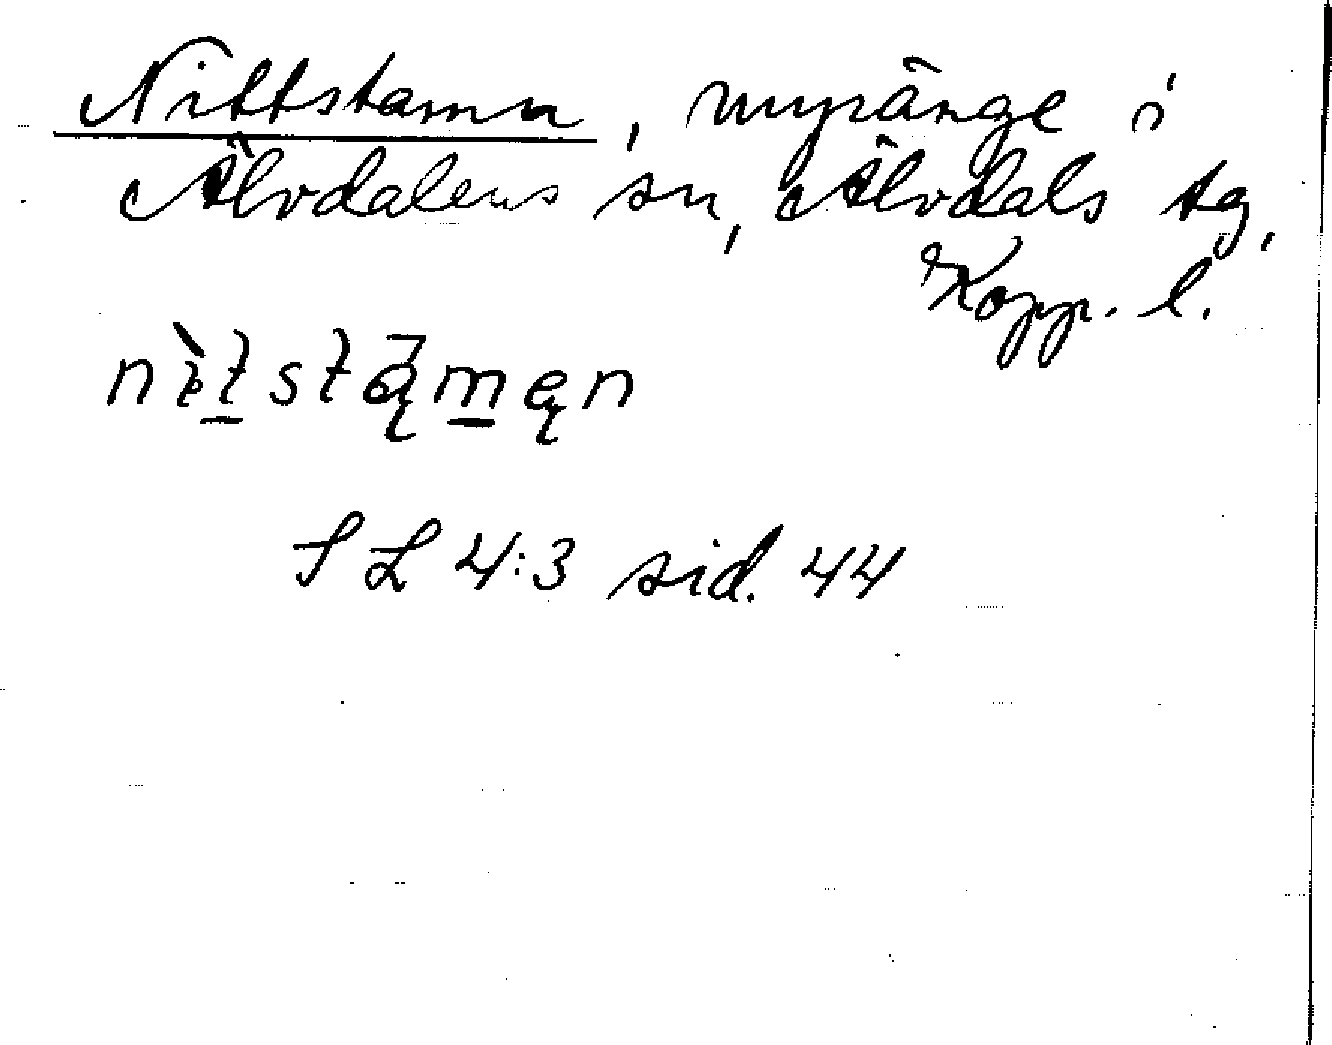 Nittstamn, myränge i
Älvdalens sn, Älvdals tg,
Kopp. l.
SL 4:3 sid. 44